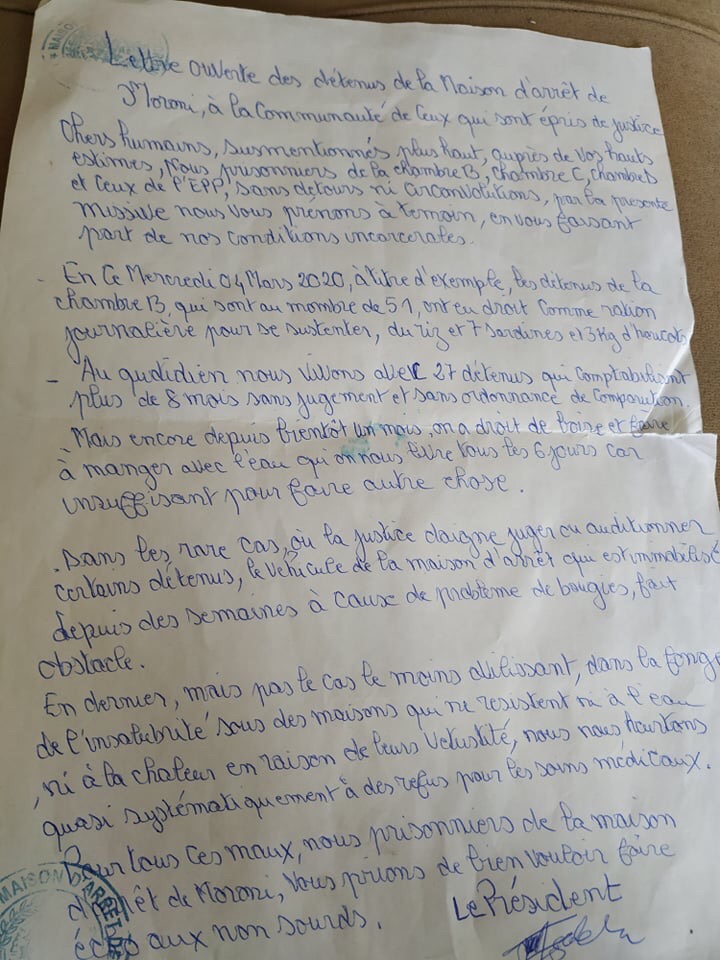 Lettre ouverte des détenus de la Maison d'arrêt de
Moroni, à la Communauté de Ceux qui sont épris de justice
Chers humains, susmentionnés plus haut, auprès de vos hauts
estimes, Nous prisonniers de la chambre B, chambre C, chambre 5
et Ceux de l'EPP, sans détours ni circonvolutions, par la présente
missive nous vous prenons à temoin, en vous faisant
part de nos conditions incarcerales.
- En Ce Mercredi 04 Mars 2020, à titre d'exemple, les détenus de la
chambre B, qui sont au nombre de 51, ont eu droit comme ration
journalière pour se sustenter, du riz et 7 sardines et 3 Kg d'haricots
- Au quotidien nous vivons avec 27 détenus qui comptabilisent
plus de 8 mois sans jugement et sans ordonnance de Comparution.
- Mais encore depuis bientôt un mois, on a droit de boire et faire
à manger avec l'eau qu'on nous livre tous les 6 jours car
insuffisant pour faire autre chose.
. Dans les rare cas, où la justice daigne juger ou auditionner
certains détenus, le véhicule de la maison d'arrêt qui est immobilisé
depuis des semaines à cause de problème de bougies, fait
obstacle.
En dernier, mais pas le cas le moins avilissant, dans la fange
de l'insalubrité sous des maisons qui ne resistent ni à l'eau
, ni à la chaleur en raison de leurs vétustité, nous nous heurtons
quasi systématiquement à des refus pour les soins médicaux.
Pour tous ces maux, nous prisonniers de la maison
d'arrêt de Moroni, vous prions de bien vouloir faire
écho aux non sourds.
Le Président
MAISON D'ARRET DE